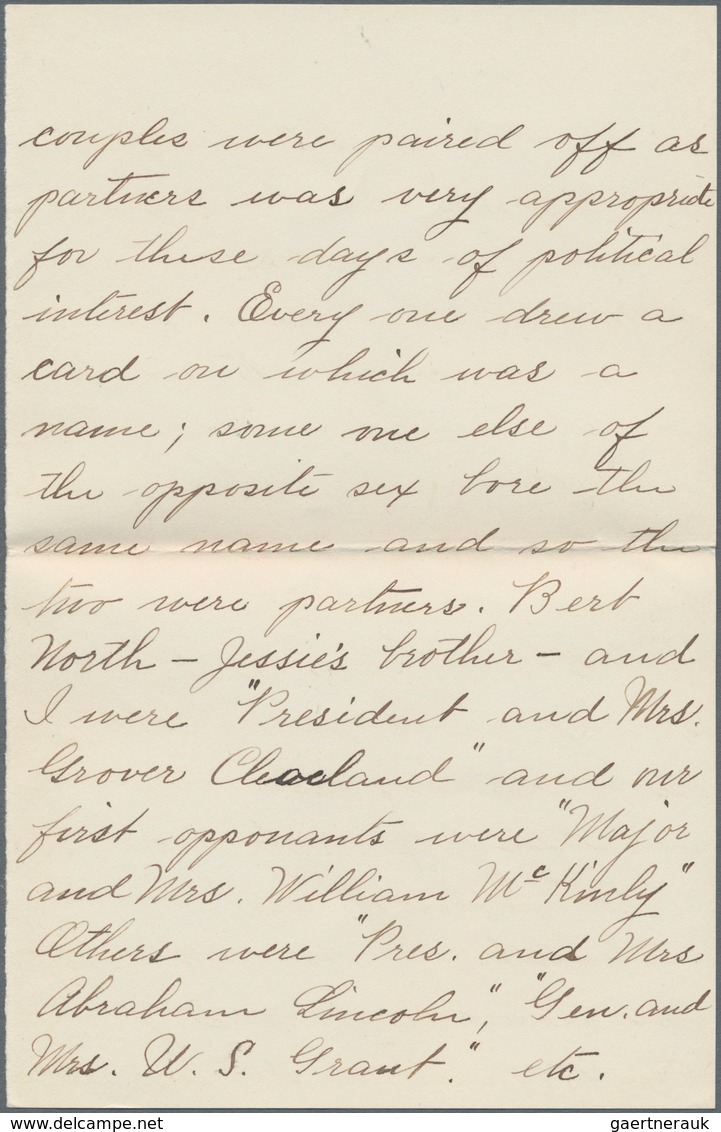 couples were paired off as
partners was very appropriate
for these days of political
interest. Every one drew a
card on which was a
name; some one else of
the opposite sex bore the
same name and so the
two were partners. Bert
North – Jessie's brother – and
I were "President and Mrs.
Grover Cleveland" and our
first opponants were "Major
and Mrs. William McKinly"
Others were "Pres. and Mrs
Abraham Lincoln", "Gen. and
Mrs. U. S. Grant." etc.
www.delcampe.net
gaertnerauk